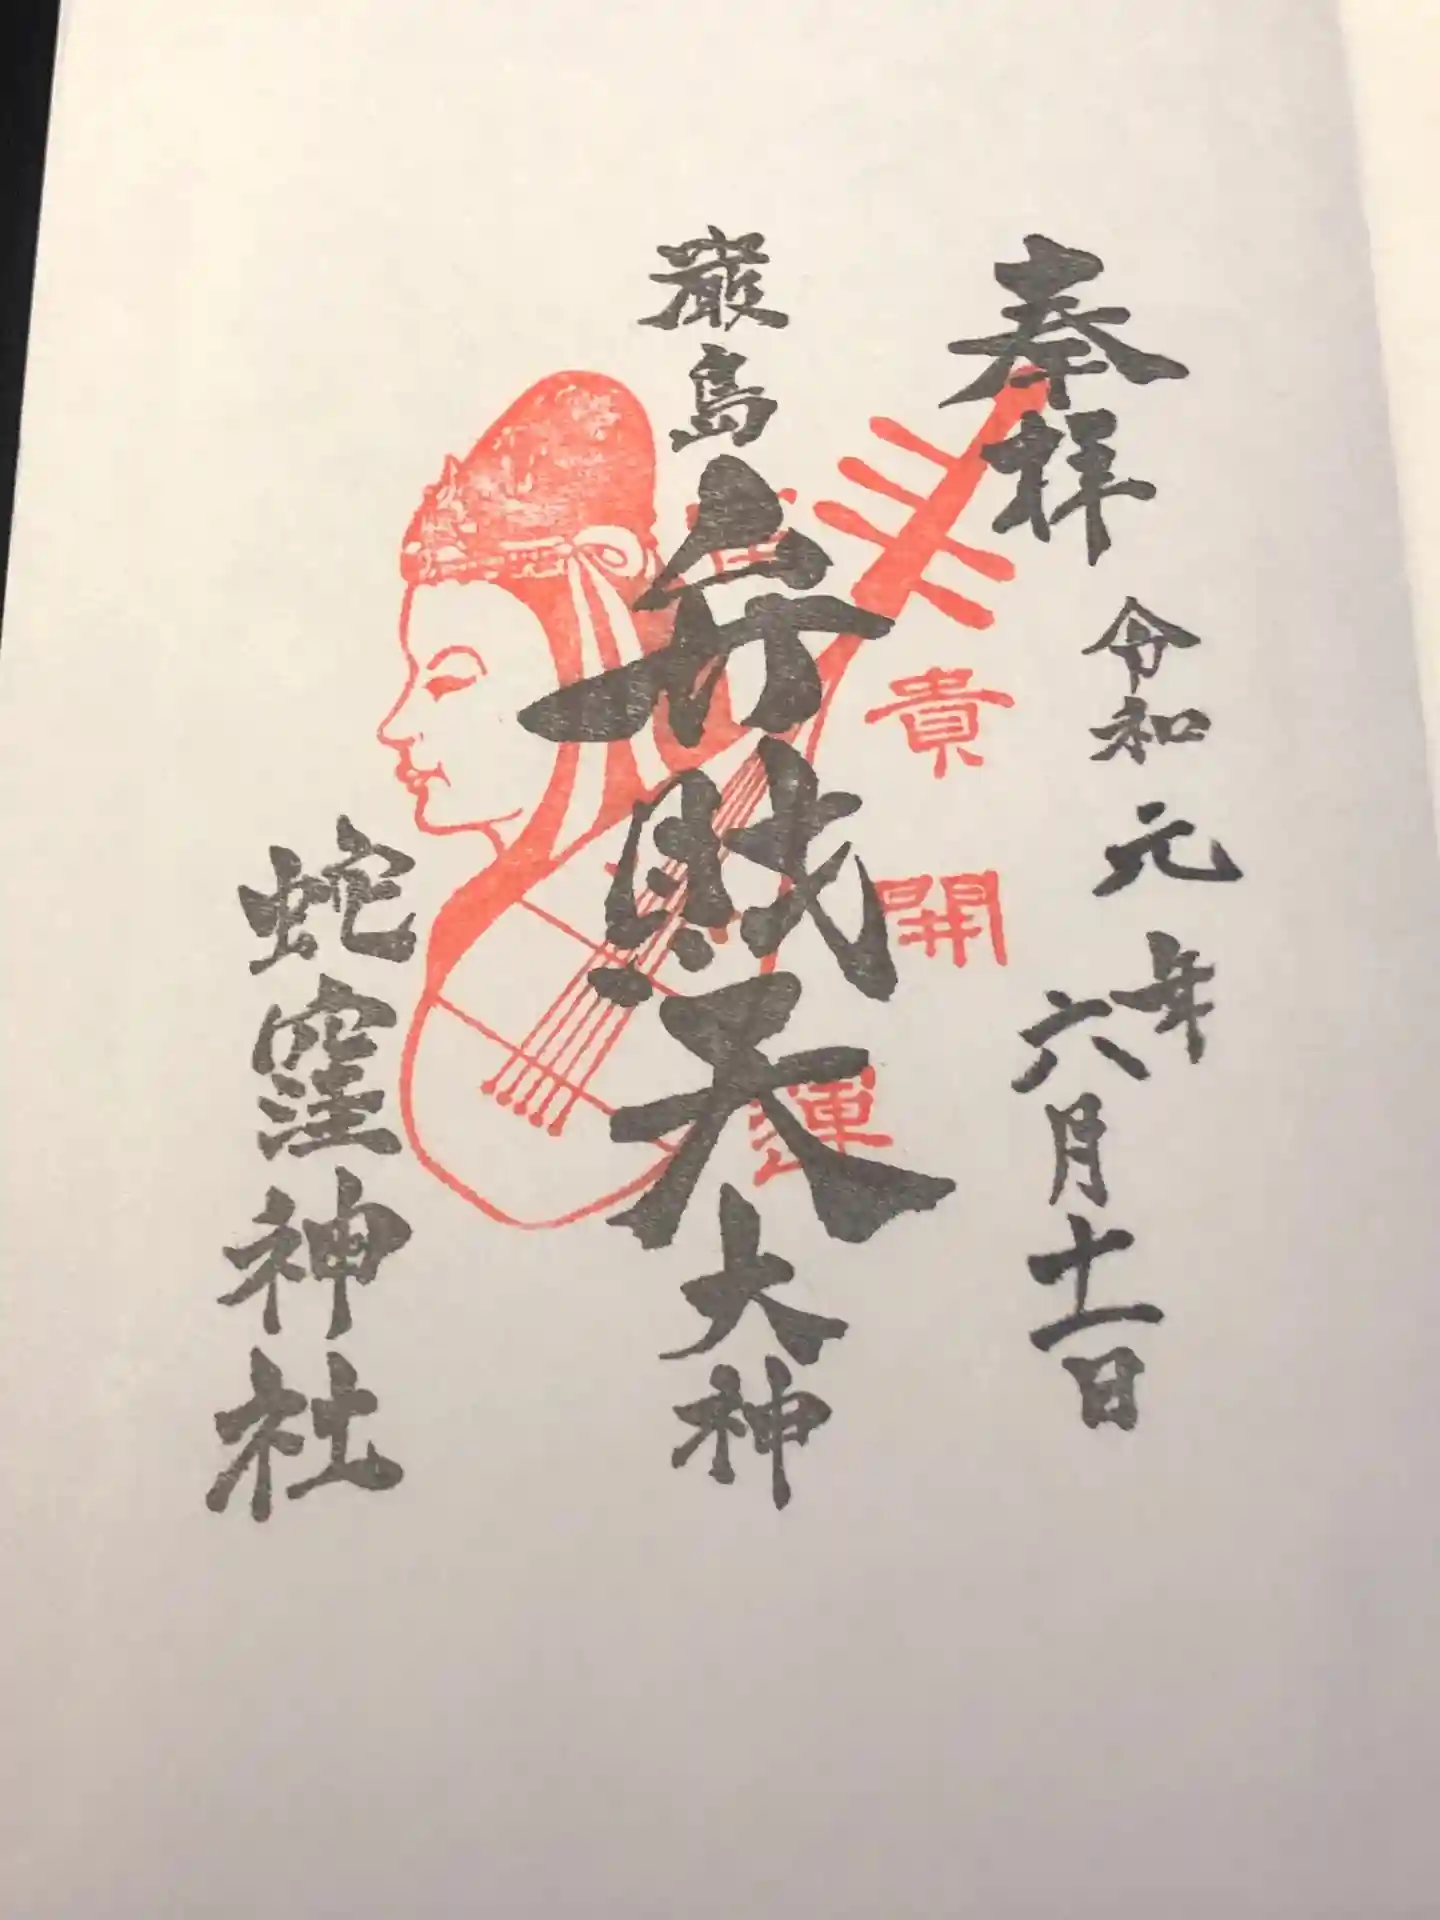 奉拝
令和元年
六月十一日
厳島
弁財天
大神
蛇窪神社
貴
開
運